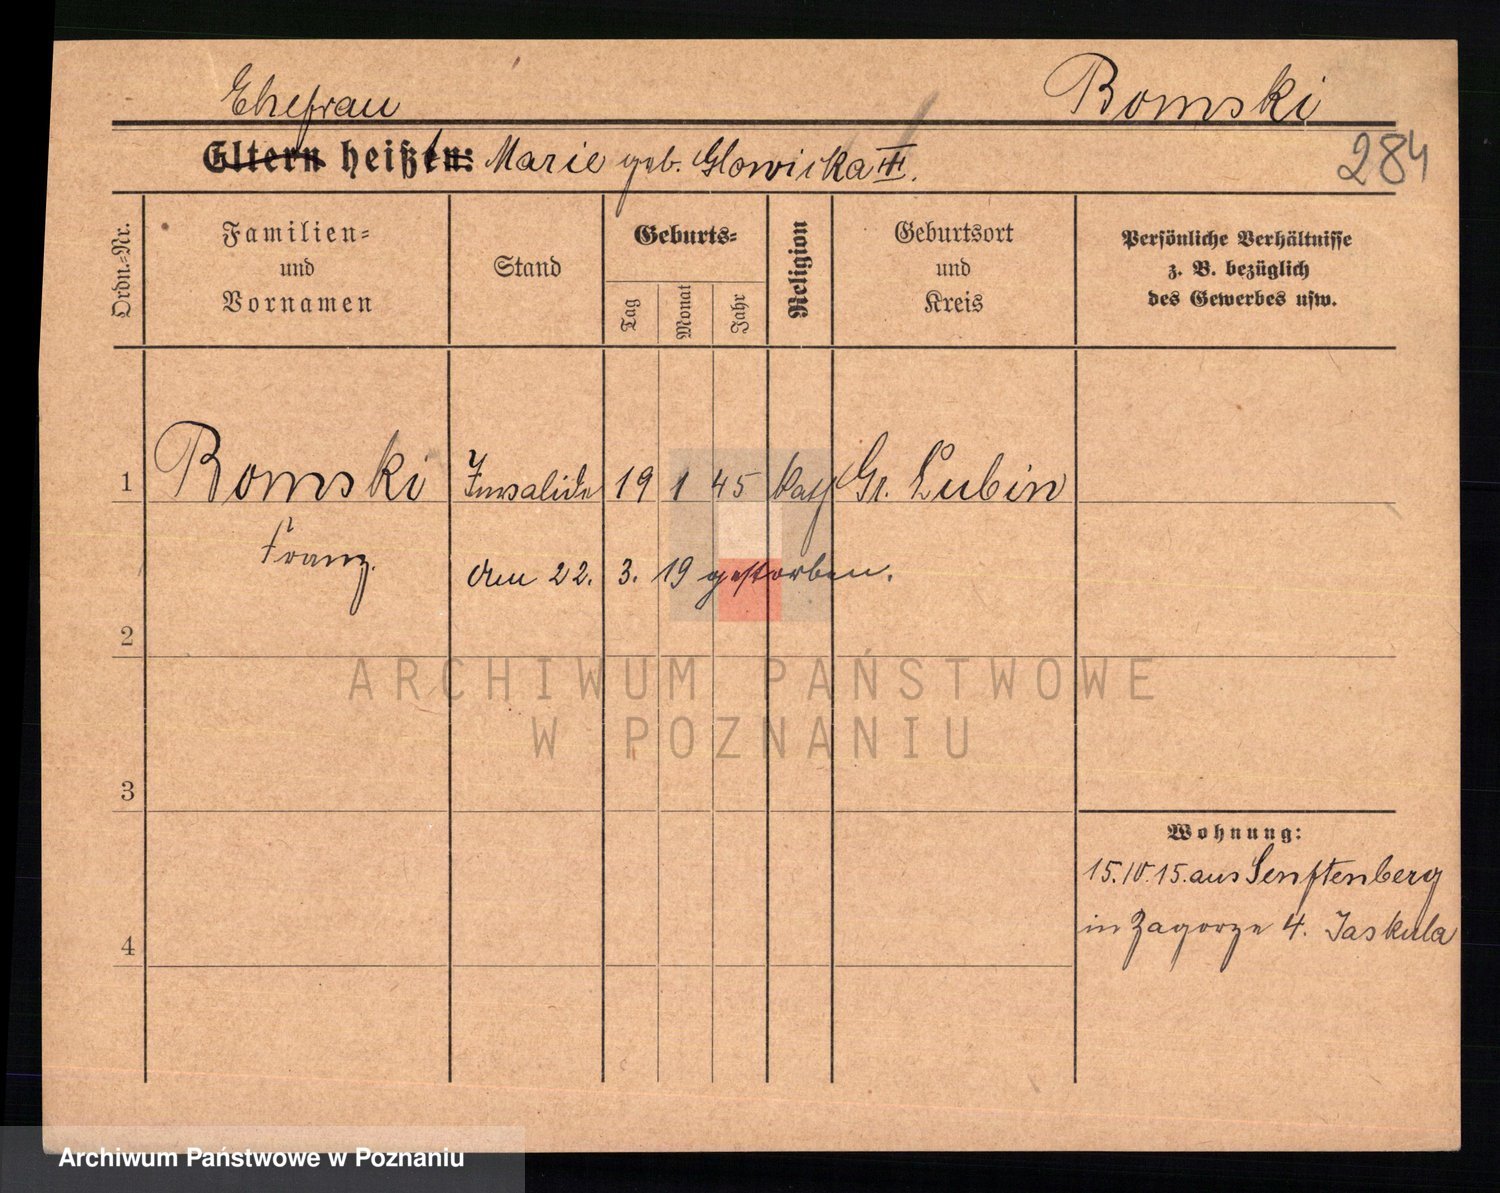 Ehefrau
Bomski
Eltern heißt: Marie geb. Glowicka III.
284
Ordn.-Nr.
Familien- und Vornamen
Stand
Geburts-
Tag
Monat
Jahr
Religion
Geburtsort und Kreis
Persönliche Verhältnisse
z. B. bezüglich
des Gewerbes usw.
1 Bomski Invalide 19 1 45 kath Gr. Lubin
Franz.
den 22. 3. 19 gestorben.
2
ARCHIWUM PAŃSTWOWE
W POZNANIU
3
Wohnung:
15.10.15. aus Senftenberg
in Zagorze 4. Jaskula
4
Archiwum Państwowe w Poznaniu